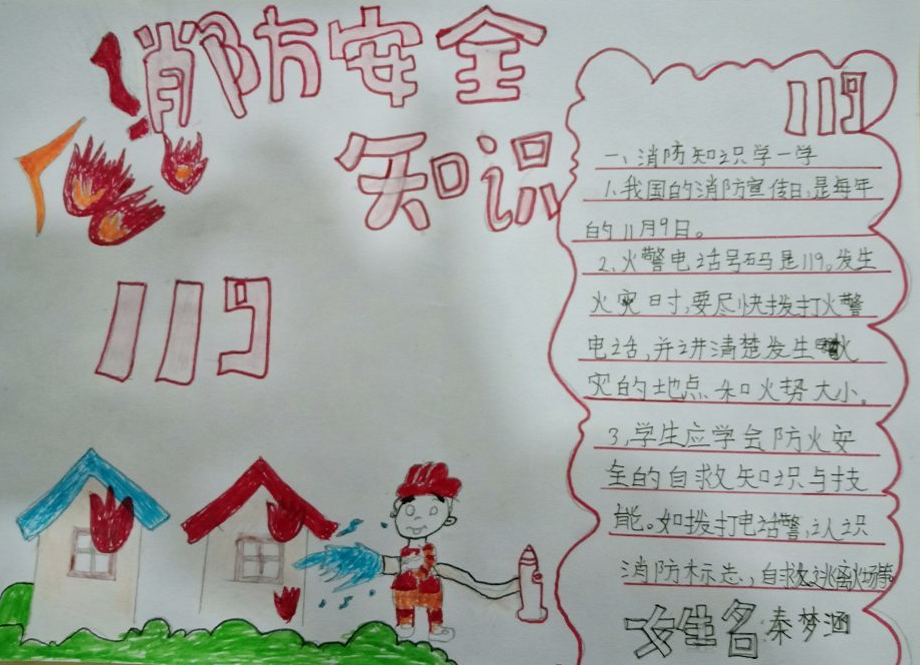 消防安全
知识
119
119
一、消防知识学一学
1、我国的消防宣传日,是每年
的11月9日。
2、火警电话号码是119。发生
火灾时,要尽快拨打火警
电话,并讲清楚发生火
灾的地点和火势大小。
3、学生应学会防火安
全的自救知识与技
能。如拨打电话警,认识
消防标志,自救逃离火场等
女生名 秦梦涵